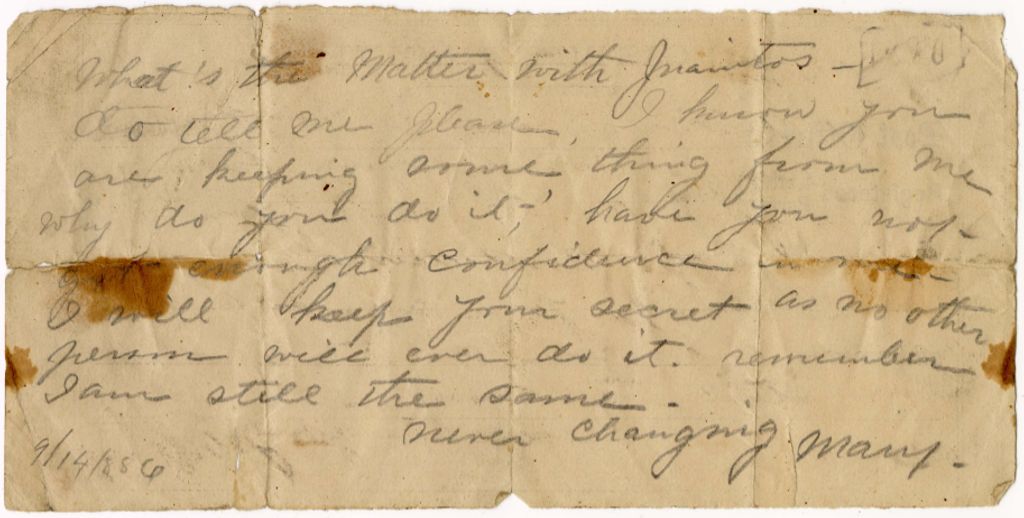 What's the Matter with Juanitos -
do tell me please, I know you
are keeping some thing from me
why do you do it, have you not
got enough confidence in me -
I will keep your secret as no other
person will ever do it. remember
I am still the same -
never changing Mary -
9/14/886